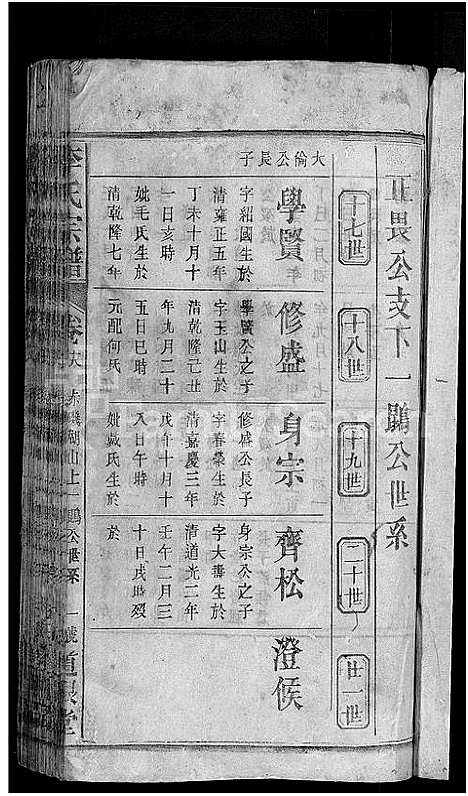 正畏公支下一鵾公世系
十七世
十八世
十九世
二十世
廿一世
大倫公長子
學賢
字紹國生於
清雍正五年
丁未十月十
一日亥時
妣毛氏生於
清乾隆七年
修盛
學賢公之子
字玉山生於
清乾隆己丑
年九月二十
五日巳時
元配何氏
身宗
修盛公長子
字春榮生於
清嘉慶三年
戊午十月十
八日午時
妣戴氏生於
齊松
身宗公之子
字大壽生於
清道光二年
壬午二月三
十日戌時歿
於
澄候
李氏宗譜
卷
湖山上一鵾公世系
一號
堂